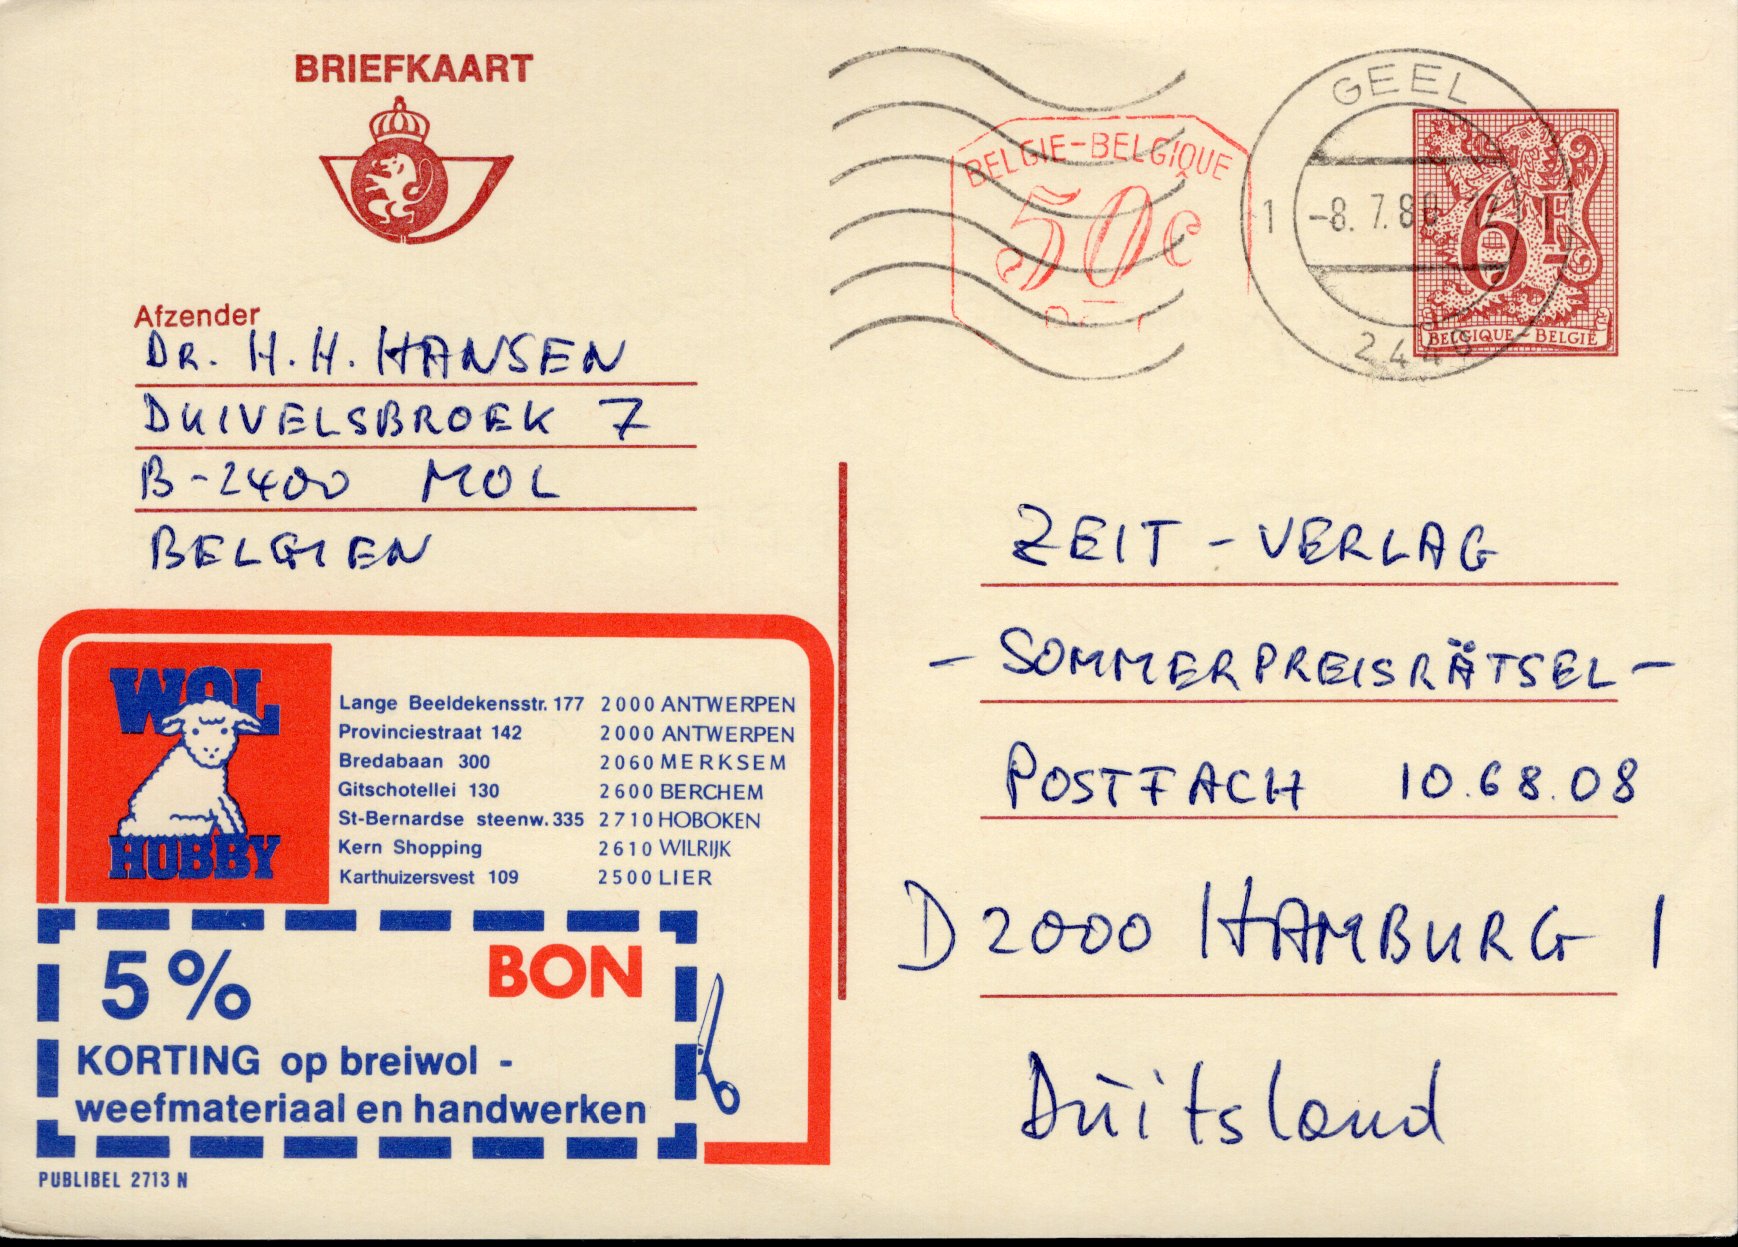 BRIEFKAART
BELGIE-BELGIQUE
50c
GEEL
1 -8. 7. 80 1
2440
6F
BELGIQUE - BELGIË
Afzender
DR. H. H. HANSEN
DUIVELSBROEK 7
B-2400 MOL
BELGIEN
ZEIT-VERLAG
- SOMMERPREISRÄTSEL -
POSTFACH 10.68.08
D 2000 HAMBURG 1
Duitsland
WOL
HOBBY
Lange Beeldekensstr. 177 2000 ANTWERPEN
Provinciestraat 142 2000 ANTWERPEN
Bredabaan 300 2060 MERKSEM
Gitschotellei 130 2600 BERCHEM
St-Bernardse steenw. 335 2710 HOBOKEN
Kern Shopping 2610 WILRIJK
Karthuizersvest 109 2500 LIER
5% BON
KORTING op breiwol -
weefmateriaal en handwerken
PUBLIBEL 2713 N